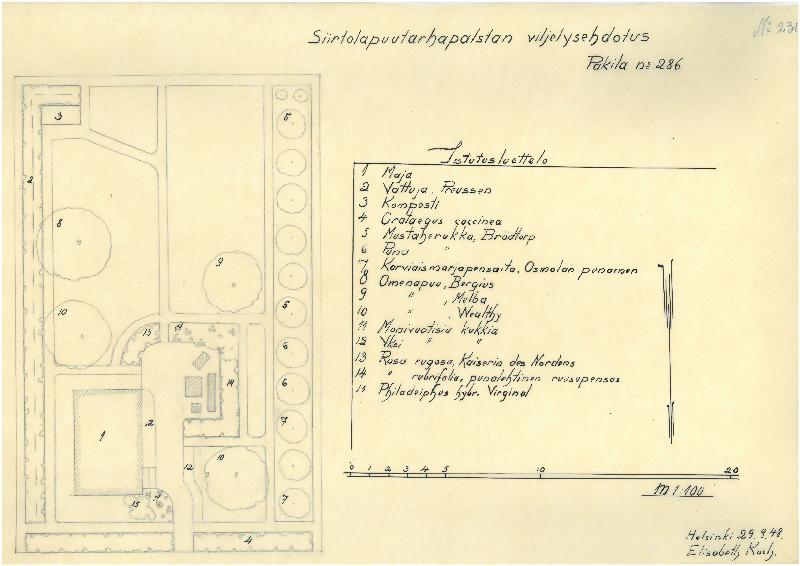 No 231
Siirtolapuutarhapalstan viljelysehdotus
Pakila no 286
Istutusluettelo
1 Maja
2 Vattuja. Preussen
3 Komposti
4 Crataegus coccinea
5 Mustaherukka, Brödtorp
6 Puna "
7 Karviaismarjapensaita, Osmolan punainen
8 Omenapuu, Bergius
9 " , Melba
10 " , Wealthy
11 Monivuotisia kukkia
12 Yksi " "
13 Rosa rugosa, Kaiserin des Nordens
14 " rubrifolia, punalehtinen ruusupensas
15 Philadelphus hybr. Virginal
0 1 2 3 4 5 10 20
M 1:100
Helsinki 29.9.48.
Elisabeth Koch.
3
5
2
8
9
10
5
13
11
6
14
6
1
2
7
12
10
15
11
7
4